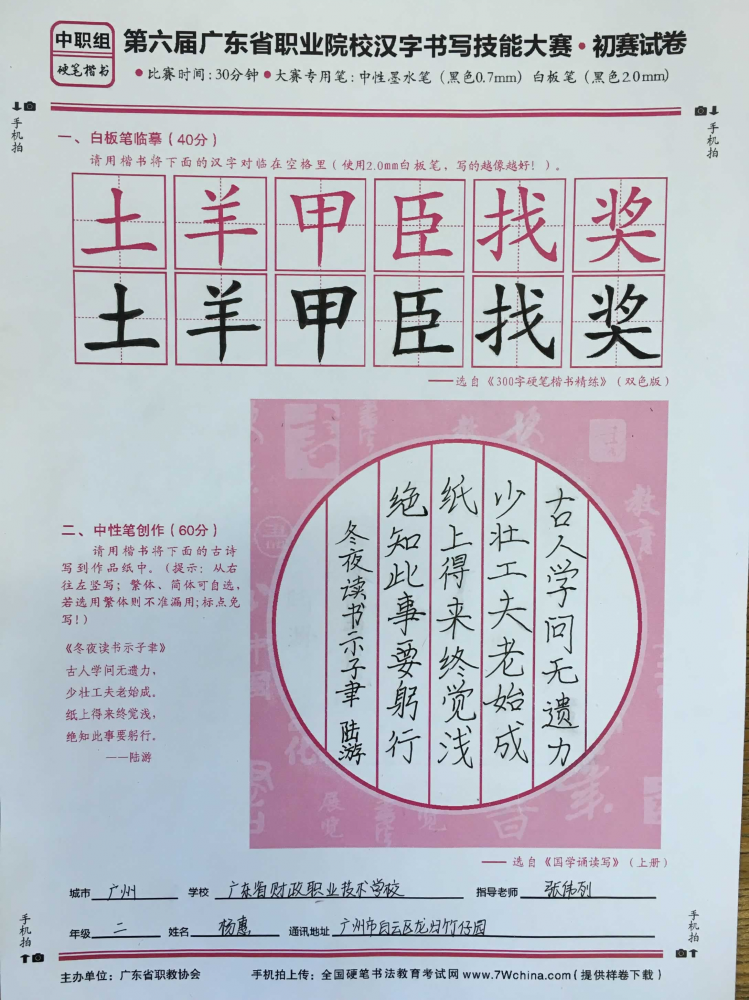 中职组
硬笔楷书
第六届广东省职业院校汉字书写技能大赛·初赛试卷
●比赛时间:30分钟●大赛专用笔:中性墨水笔(黑色0.7mm) 白板笔(黑色2.0mm)
手机拍
手机拍
一、白板笔临摹(40分)
请用楷书将下面的汉字对临在空格里(使用2.0mm白板笔,写的越像越好!)。
土羊甲臣找奖
土羊甲臣找奖
——选自《300字硬笔楷书精练》(双色版)
二、中性笔创作(60分)
请用楷书将下面的古诗
写到作品纸中。(提示:从右
往左竖写;繁体、简体可自选,
若选用繁体则不准漏用;标点免
写!)
《冬夜读书示子聿》
古人学问无遗力,
少壮工夫老始成。
纸上得来终觉浅,
绝知此事要躬行。
——陆游
古人学问无遗力
少壮工夫老始成
纸上得来终觉浅
绝知此事要躬行
冬夜读书示子聿 陆游
——选自《国学诵读写》(上册)
城市 广州 学校 广东省财政职业技术学校 指导老师 张伟列
年级 二 姓名 杨惠 通讯地址 广州市白云区龙归竹仔园
手机拍
手机拍
主办单位:广东省职教协会 手机拍上传:全国硬笔书法教育考试网 www.7Wchina.com(提供样卷下载)